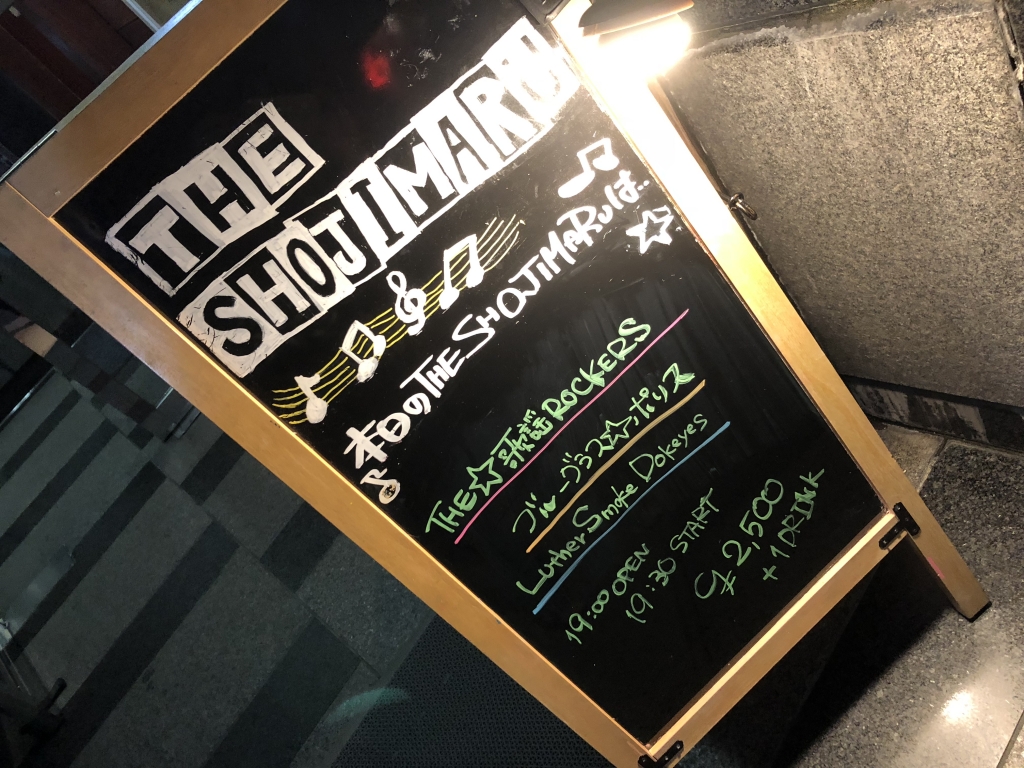 THE
SHOJIMARU
本日のTHE SHOJIMARUは..
THE☆歌謡ROCKERS
ブルーグラス☆ポリス
Luther Smoke Dokeyes
19:00 OPEN
19:30 START
¥2,500
+1DRINK